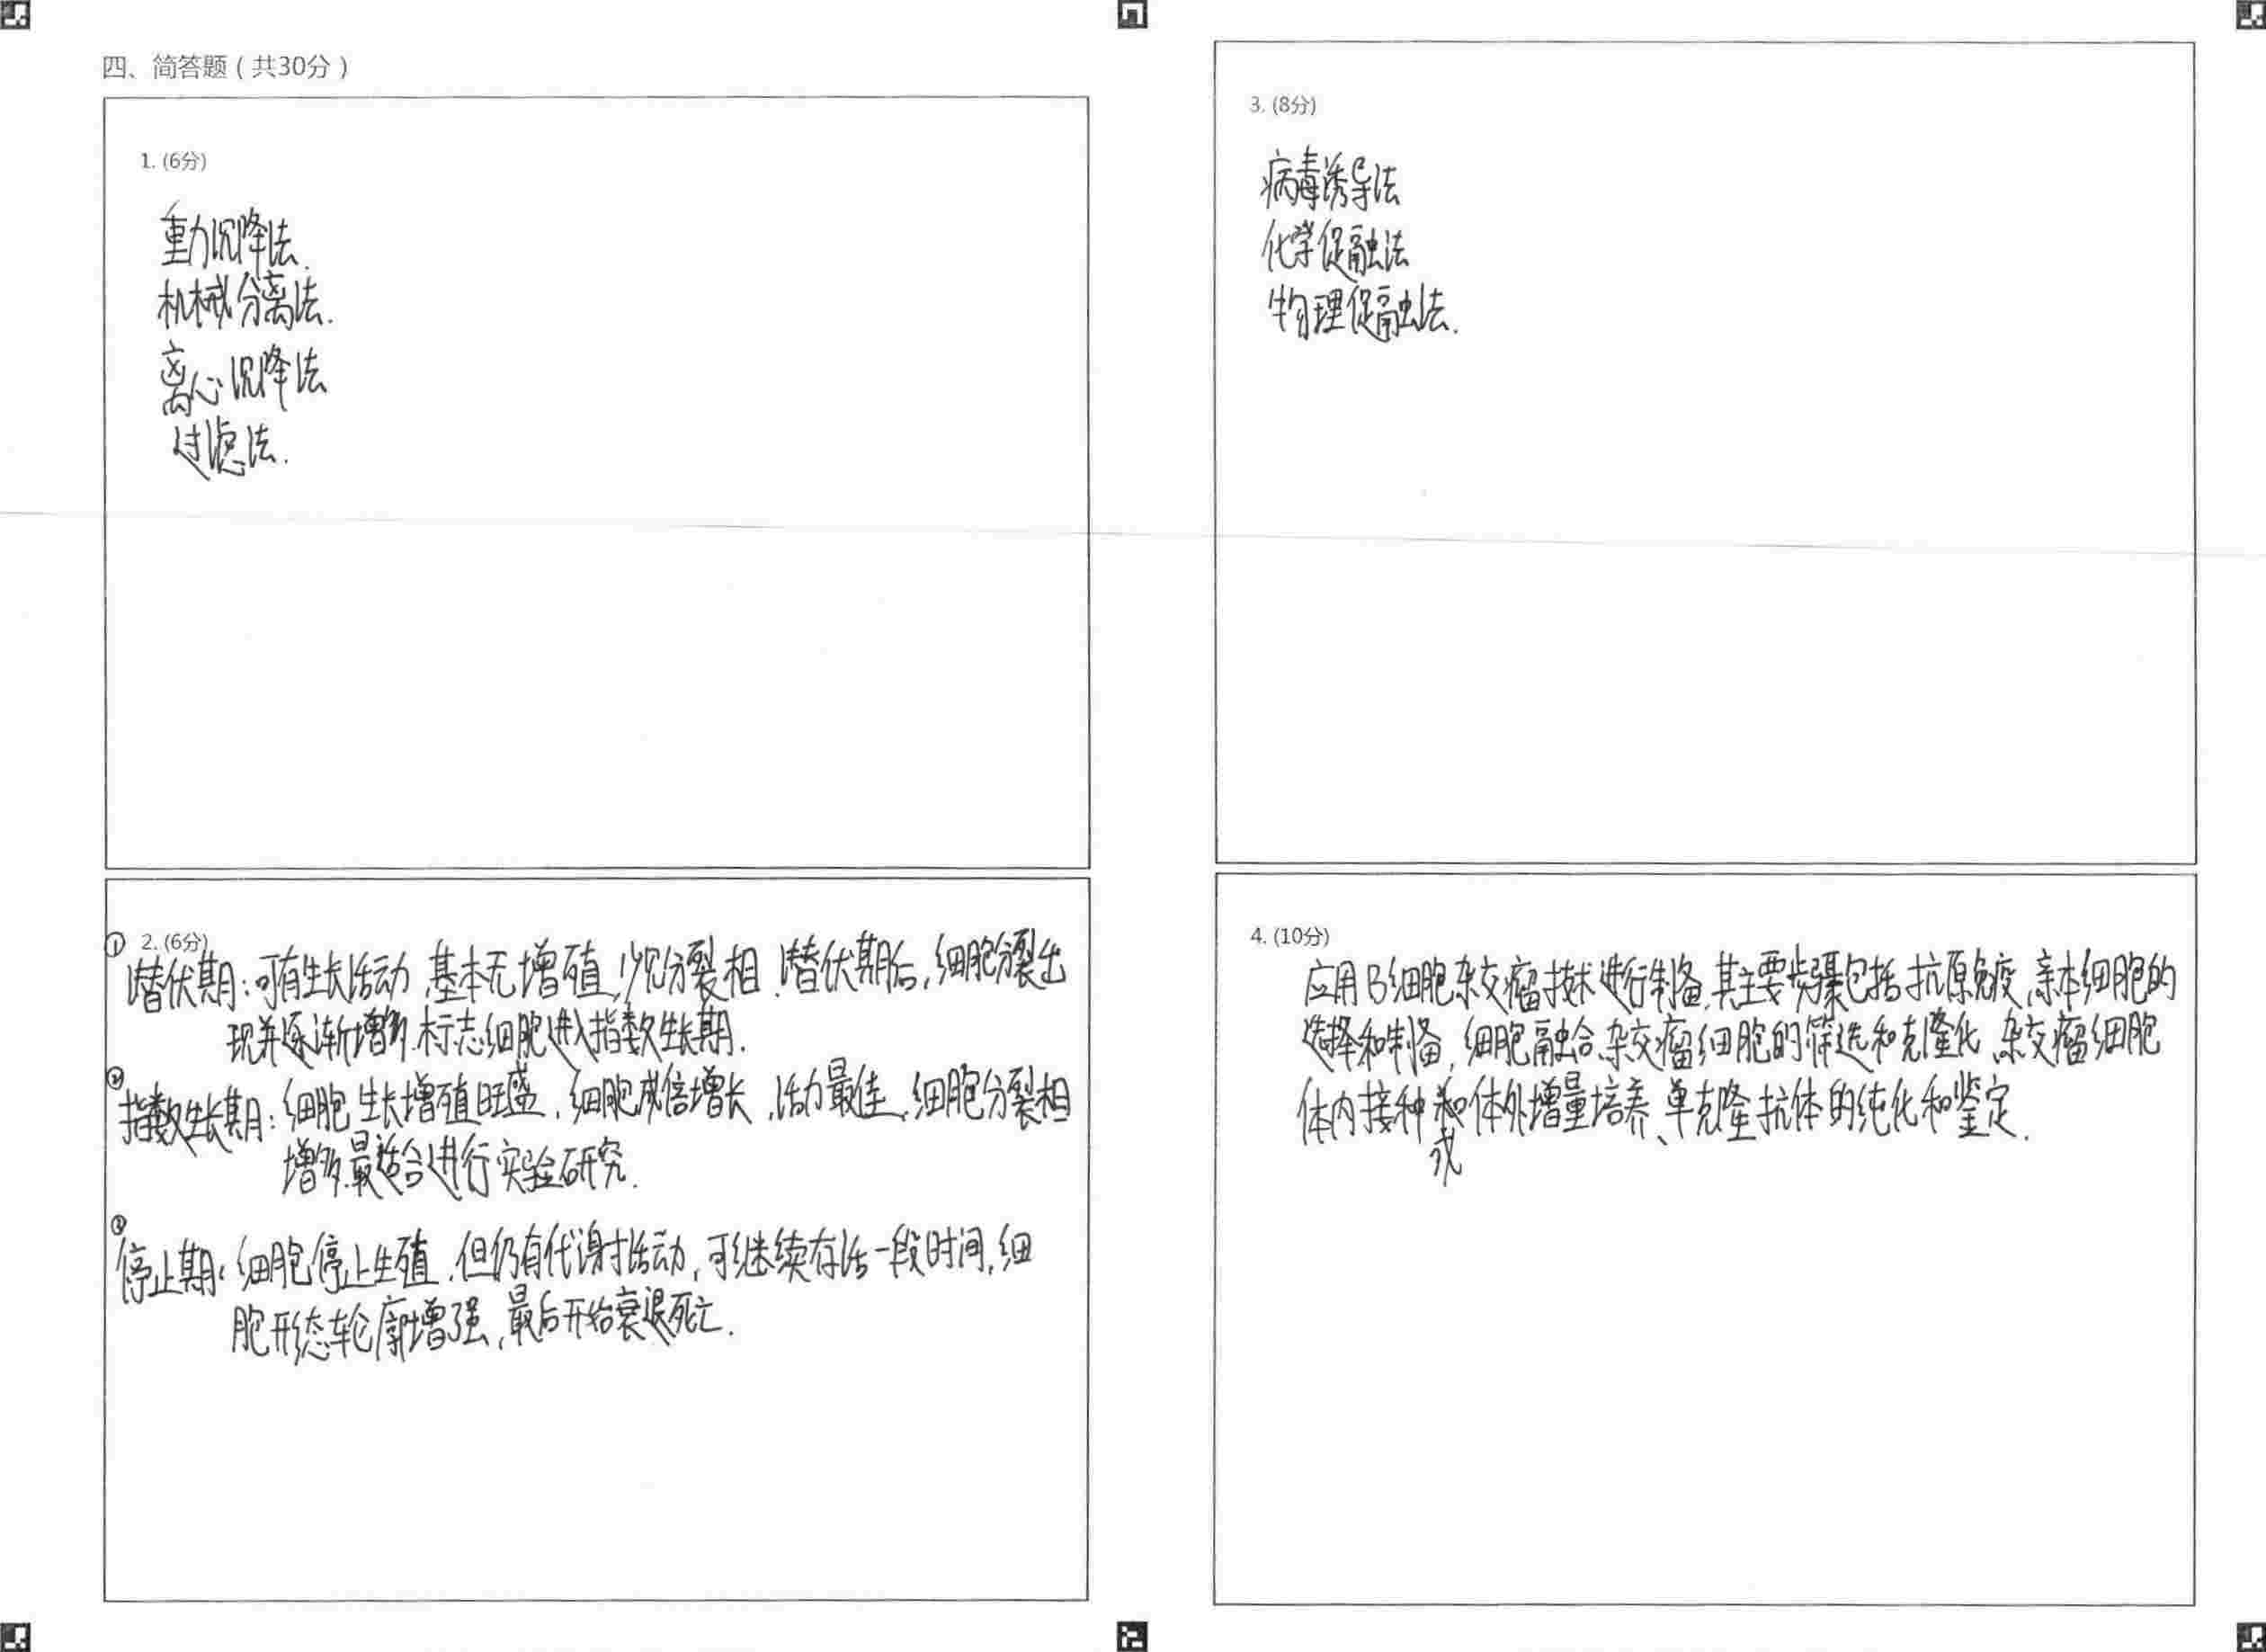 四、简答题（共30分）
1. (6分)
重力沉降法.
机械分离法.
离心沉降法
过滤法.
① 2. (6分)
潜伏期:可有生长活动,基本无增殖,少见分裂相.潜伏期后,细胞分裂出
现并逐渐增多.标志细胞进入指数生长期.
②
指数生长期:细胞生长增殖旺盛,细胞成倍增长,活力最佳,细胞分裂相
增多.最适合进行实验研究.
③
停止期:细胞停止生殖,但仍有代谢活动,可继续存活一段时间,细
胞形态轮廓增强,最后开始衰退死亡.
3. (8分)
病毒诱导法
化学促融法
物理促融法.
4. (10分)
应用B细胞杂交瘤技术进行制备,其主要步骤包括抗原免疫、亲本细胞的
选择和制备,细胞融合、杂交瘤细胞的筛选和克隆化、杂交瘤细胞
体内接种或体外增量培养、单克隆抗体的纯化和鉴定.